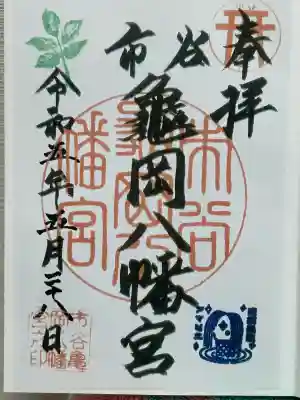 奉拝
市谷
亀岡八幡宮
令和五年五月二十八日
市谷亀岡八幡宮
市谷亀岡八幡宮之印